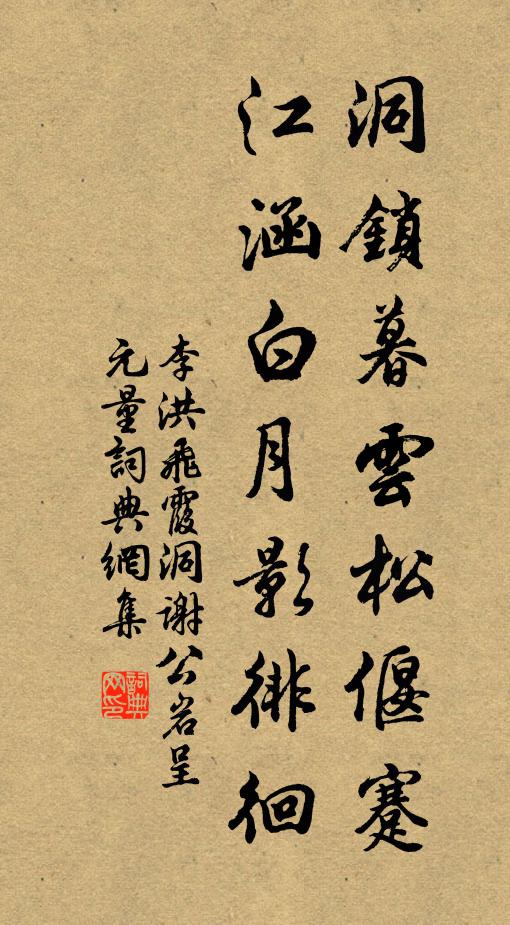 洞鎖暮雲松偃蹇
江涵白月影徘徊
李洪飛霞洞謝公岩呈
元量詞典網集
詞典网印